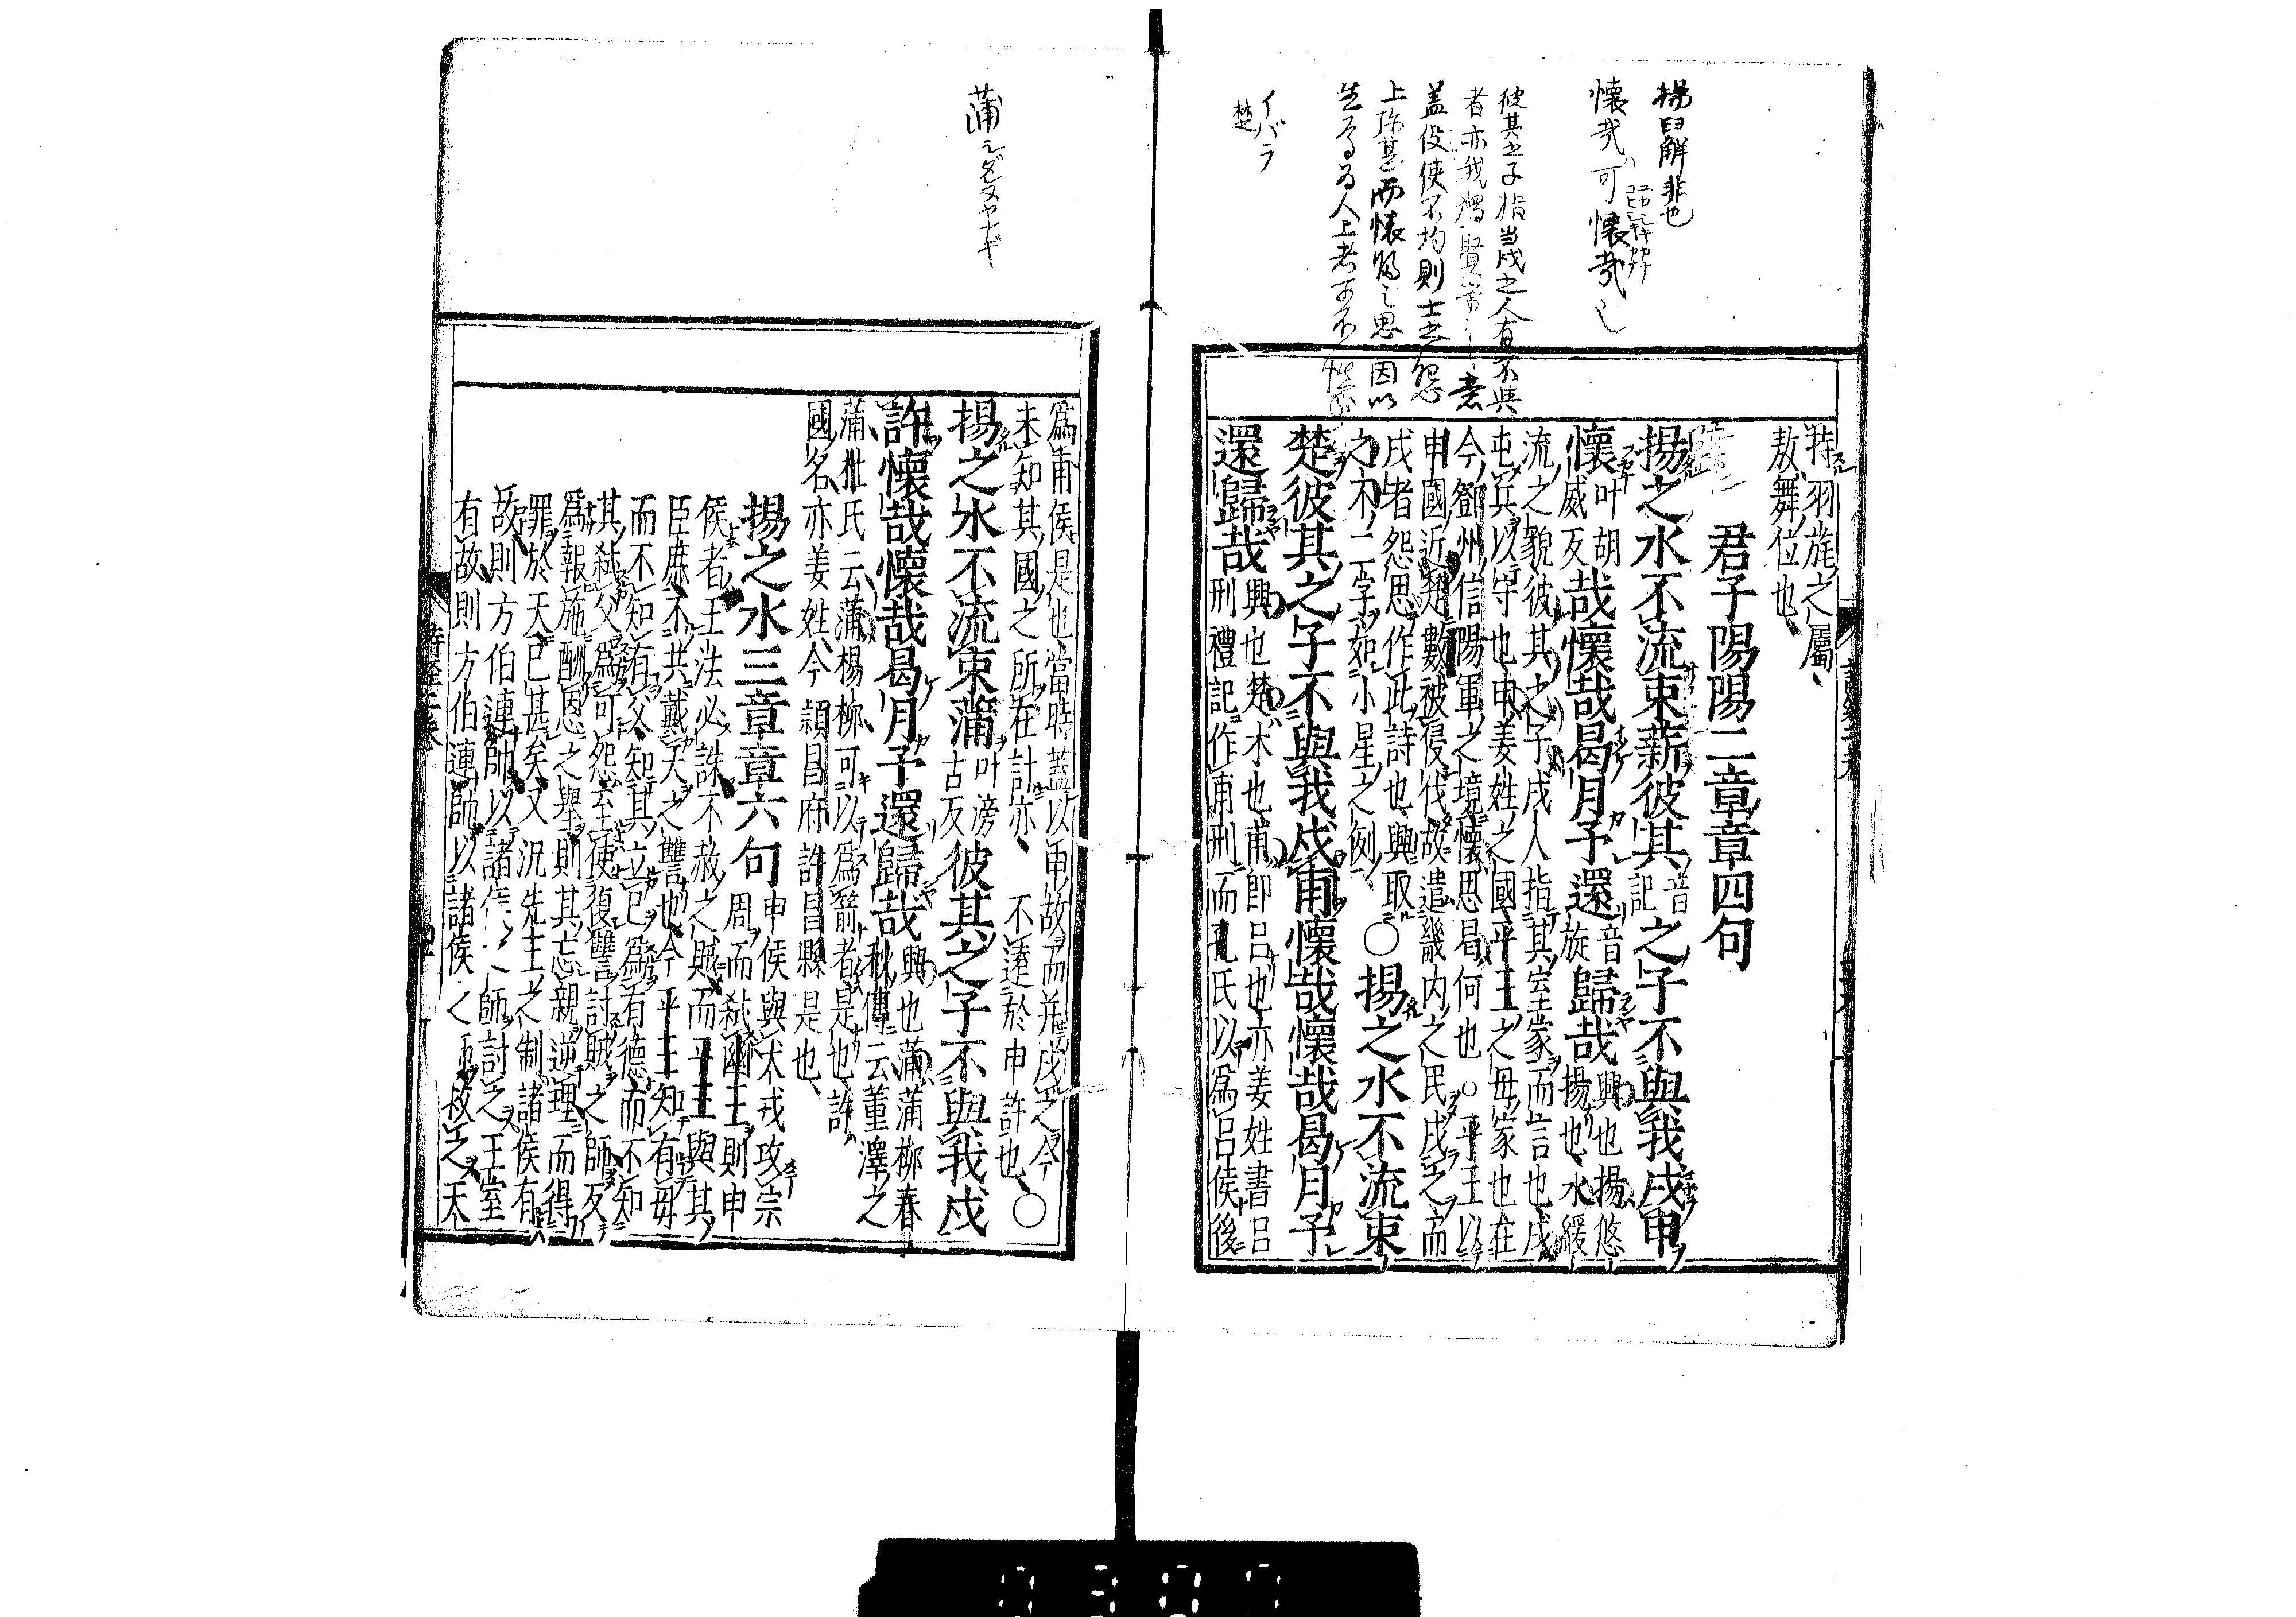 揚曰解非也
懷哉可懷哉
彼其之子指当戍之人有不與
者亦我獨賢労之意
盖役使不均則士之怨
上孫甚而懷帰之思因以
生焉為人上者可不
イバラ
楚
持羽旄之屬
敖舞位也
君子陽陽二章章四句
揚之水不流束薪彼其音記之子不與我戍申
懷叶胡威反哉懷哉曷月予還音旋歸哉興也揚悠揚也水緩
流之貌彼其之子戍人指其室家而言也戍
屯兵以守也申姜姓之國平王之母家也在
今鄧州信陽軍之境懷思曷何也○平王以
申國近楚數被侵伐故遣畿內之民戍之而
戍者怨思作此詩也興取
之不二字如小星之例○揚之水不流束
楚彼其之子不與我戍甫懷哉懷哉曷月予
還歸哉興也楚木也甫卽呂也亦姜姓書呂
刑禮記作甫刑而孔氏以爲呂侯後
爲甫侯是也當時蓋以申故而并戍之今
未知其國之所在計亦不遠於申許也○
揚之水不流束蒲叶滂古反彼其之子不與我戍
許懷哉懷哉曷月予還歸哉興也蒲蒲柳春
秋傳云董澤之
蒲杜氏云蒲楊柳可以爲箭者是也許
國名亦姜姓今潁昌府許昌縣是也
揚之水三章章六句申侯與犬戎攻宗
周而弑幽王則申
侯者王法必誅不赦之賊而平王與其
臣庶不共戴天之讐也今平王知有母
而不知有父知其立己爲有德而不知
其弑父爲可怨至使復讐討賊之師反
爲報施酬恩之舉則其忘親逆理而得
罪於天已甚矣又況先王之制諸侯有
故則方伯連帥以諸侯之師討之王室
有故則方伯連帥以諸侯之師救之天
蒲